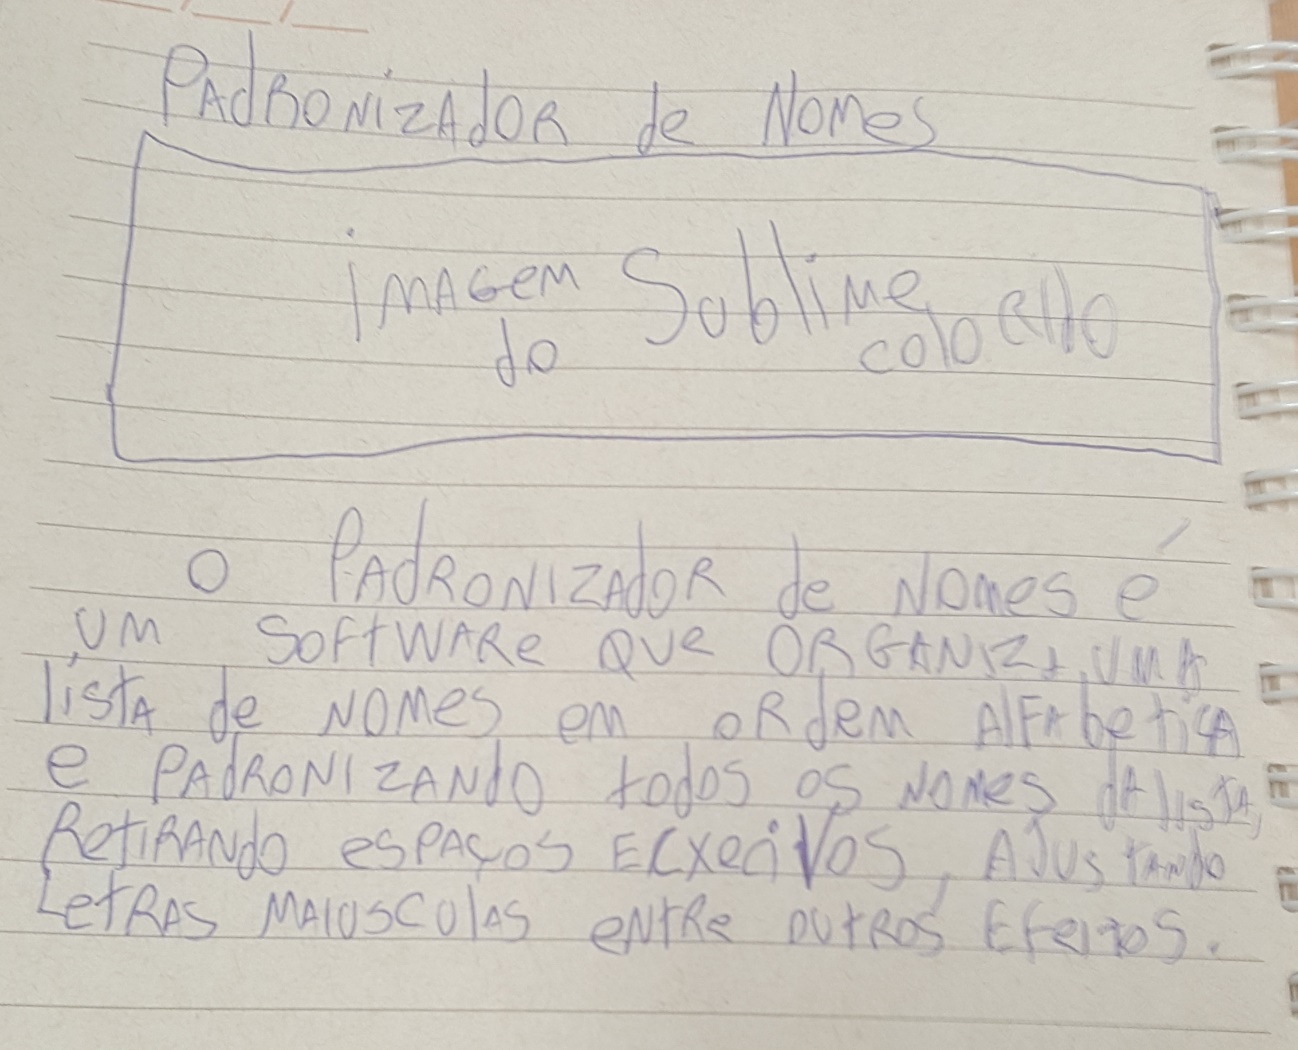 PAdRONIZAdOR de NOMes
iMAGem Sublime
do colo
O PAdRONIZAdOR de NOMes é
UM SOftWARe QUe ORGANIZA UMA
listA de NOMes em ORdem AlFAbeticA
e PAdRONIZANdO todos os NOMes dA listA,
RetiRANdo esPAços ECXecivos, AJUSTANdo
LetRAS MAIUSCOlAS eNtRe OUtROS EFeitos.